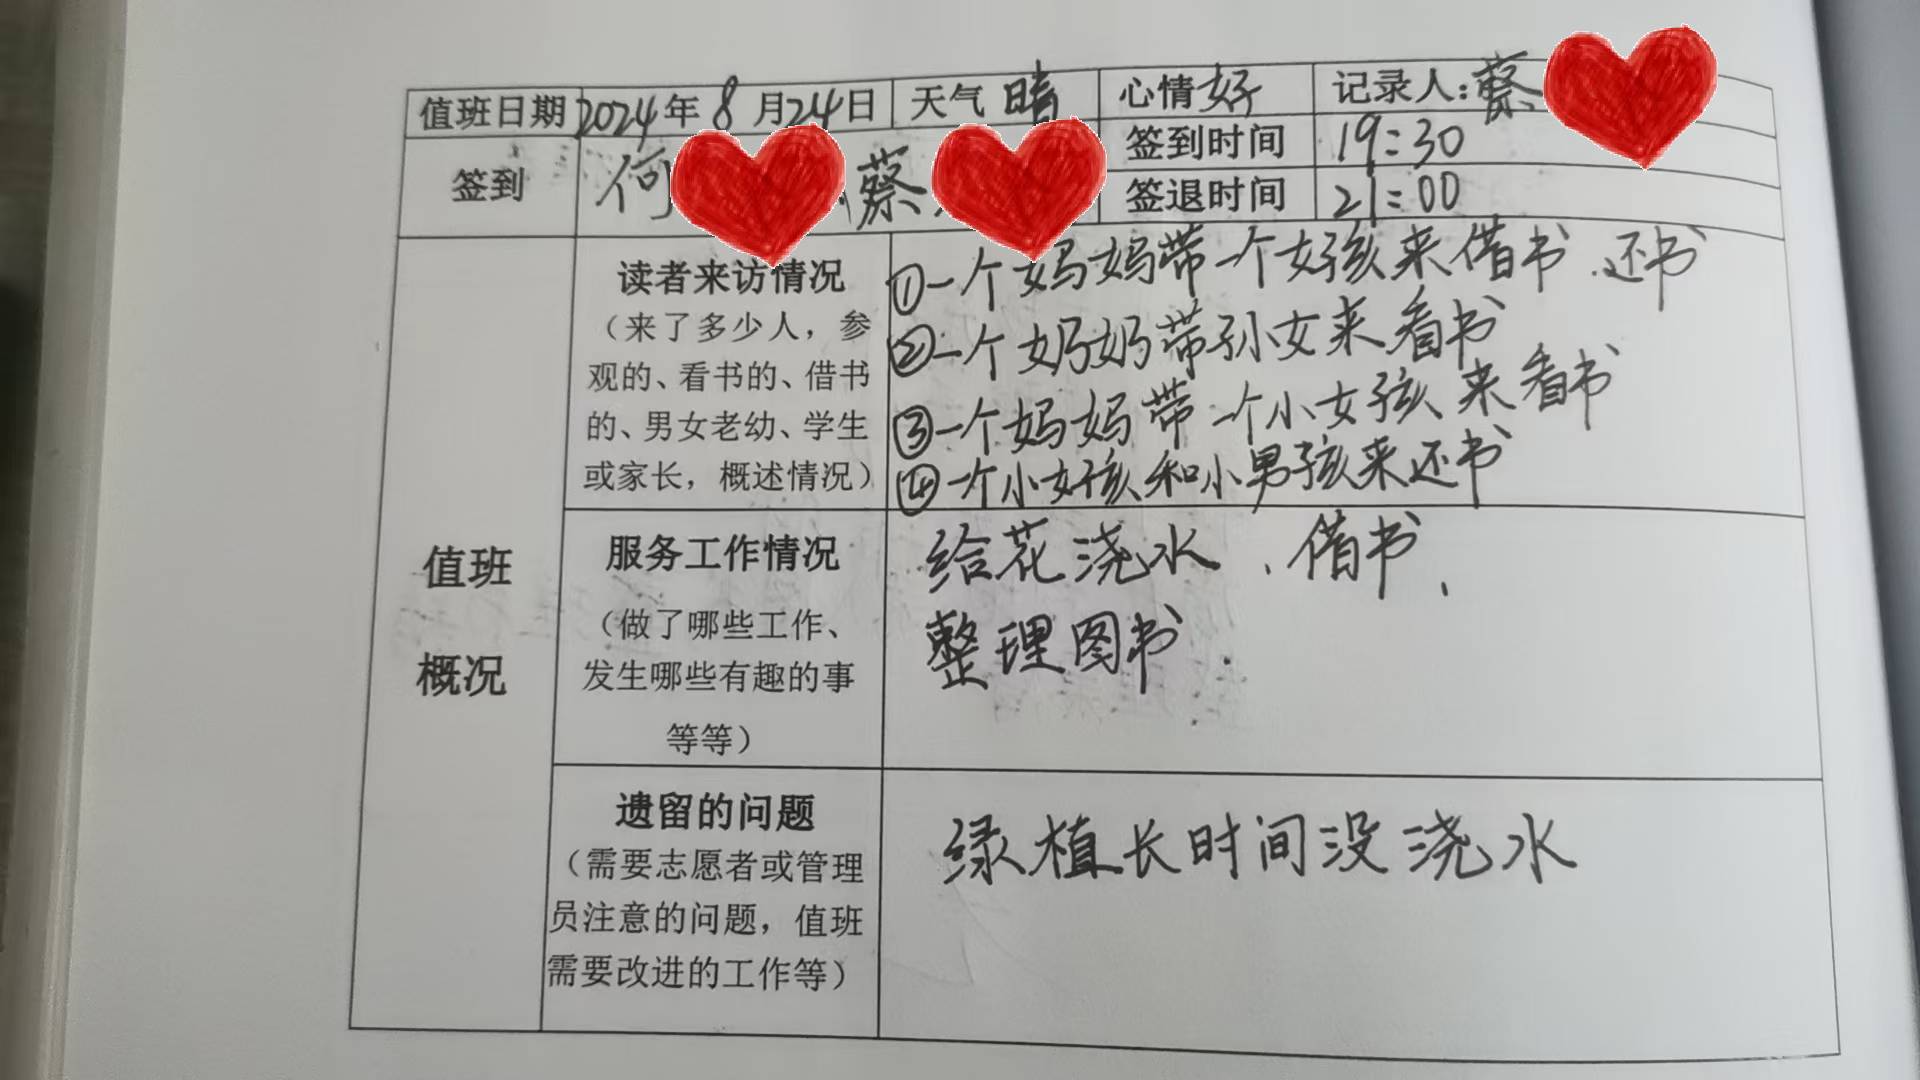 值班日期 2024年8月24日 天气 晴 心情 好 记录人:蔡
签到 何 蔡 签到时间 19:30
签退时间 21:00
值班
概况
读者来访情况
（来了多少人，参
观的、看书的、借书
的、男女老幼、学生
或家长，概述情况）
①一个妈妈带一个女孩来借书.还书
②一个奶奶带孙女来看书
③一个妈妈带一个小女孩来看书
④一个小女孩和小男孩来还书
服务工作情况
（做了哪些工作、
发生哪些有趣的事
等等）
给花浇水、借书、
整理图书
遗留的问题
（需要志愿者或管理
员注意的问题，值班
需要改进的工作等）
绿植长时间没浇水